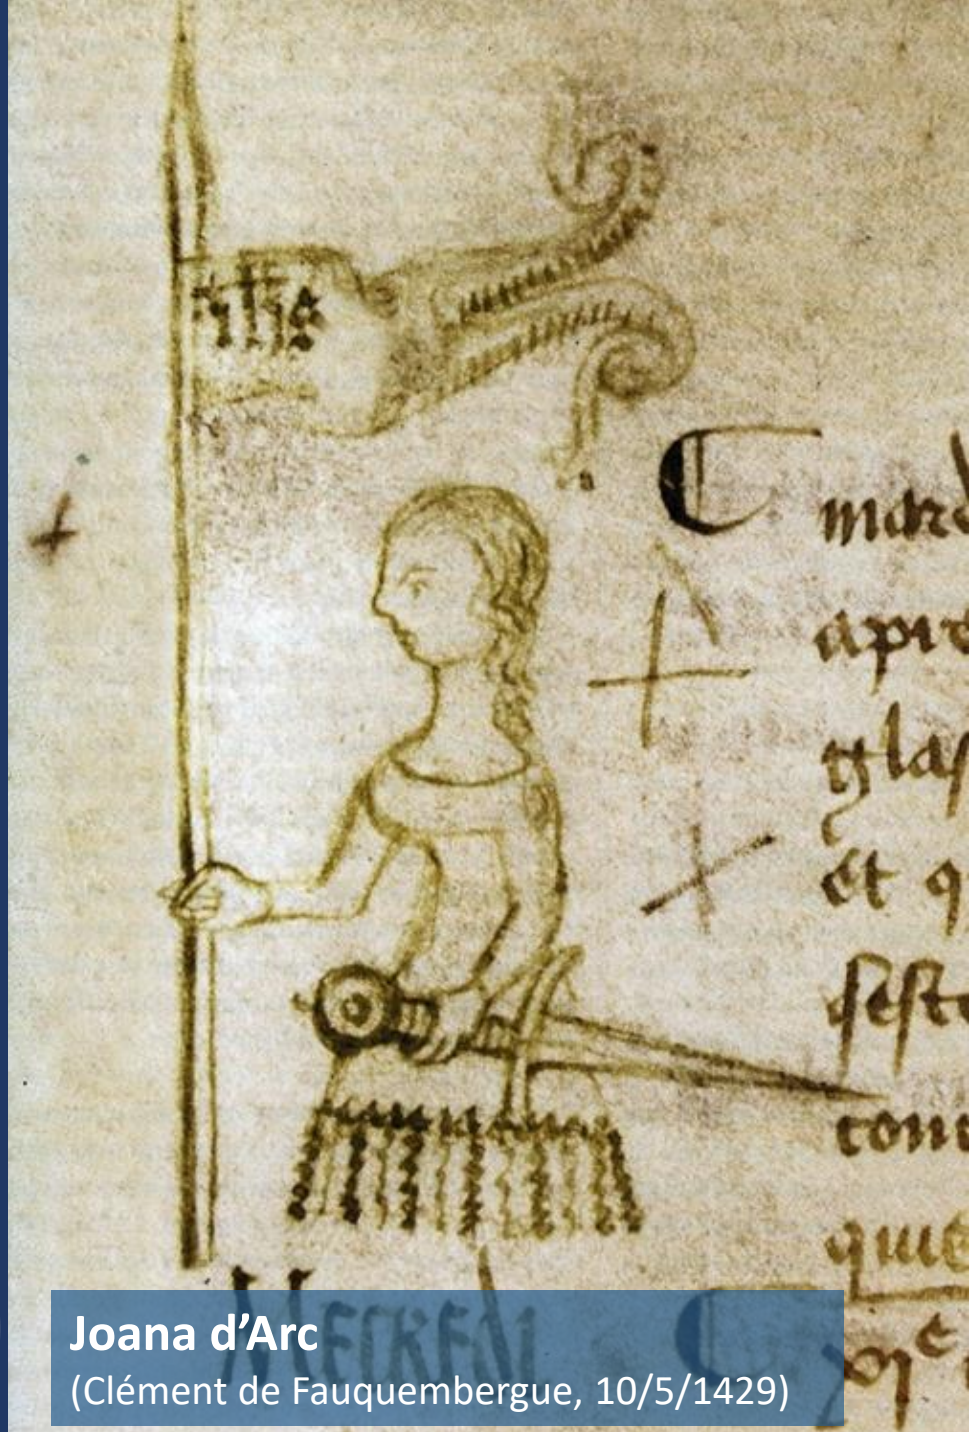 ihs
mard
apre
glas
et q
feste
tout
quie
Mercredi
Joana d’Arc
(Clément de Fauquembergue, 10/5/1429)